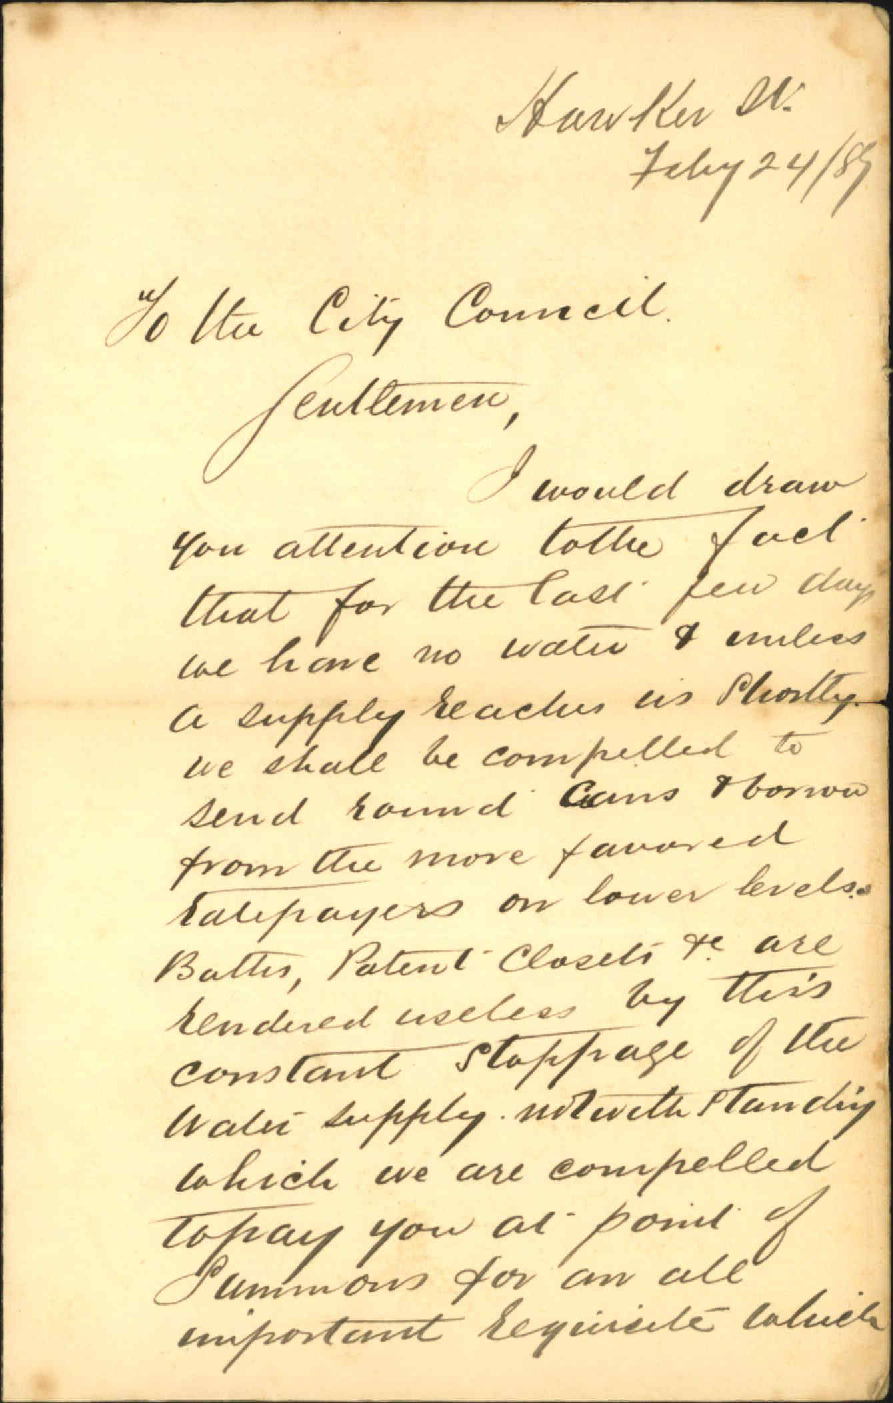 Hawker St.
Feby 24/89
To the City Council.
Gentlemen,
I would draw
you attention to the fact
that for the last few days
we have no water & unless
a supply reaches us shortly
we shall be compelled to
send round Cans & borrow
from the more favored
ratepayers on lower levels.
Baths, Patent Closets &c are
rendered useless by this
constant stoppage of the
Water supply. notwithstanding
which we are compelled
to pay you at point of
Summons for an all
important requisite which